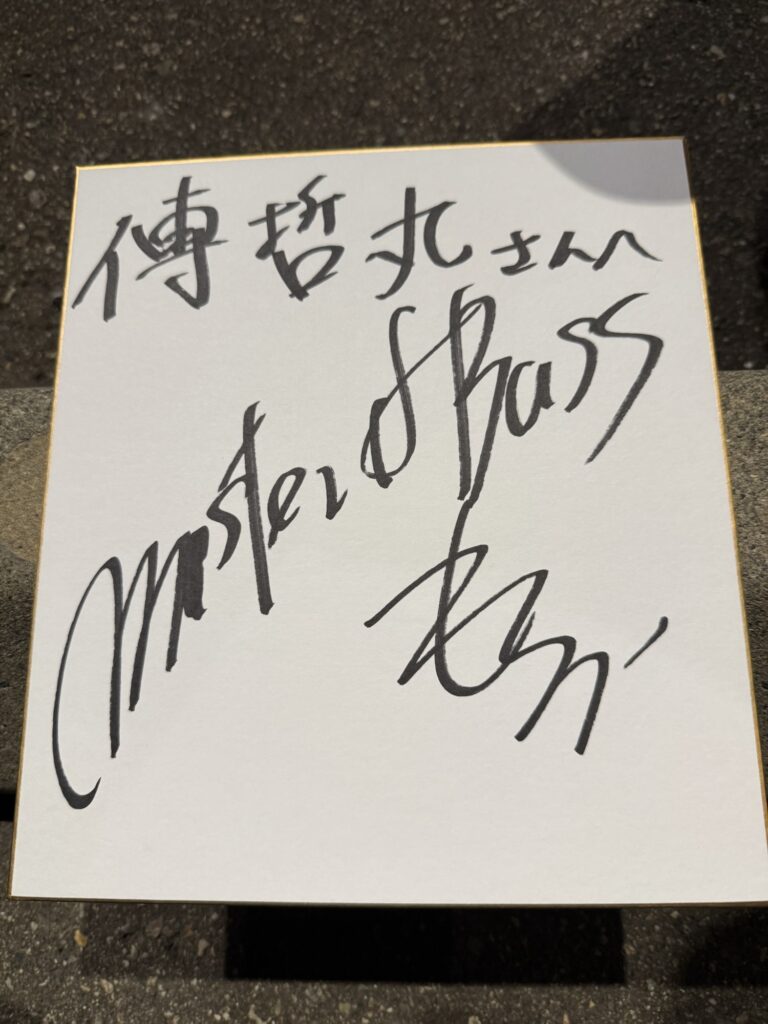 傳哲丸さんへ
Master of Bass